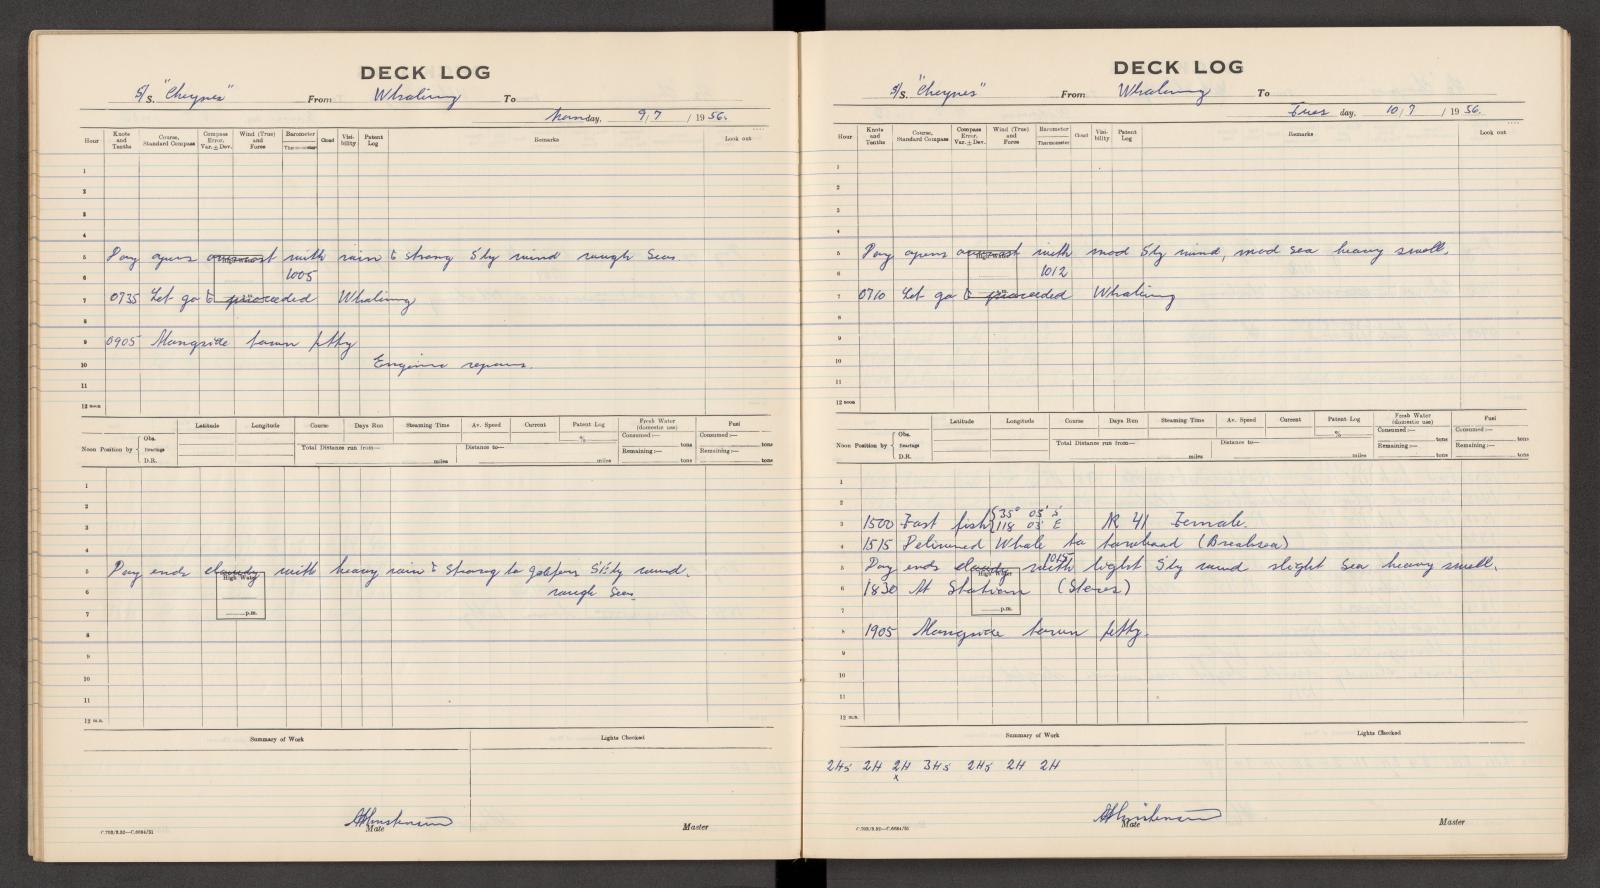 DECK LOG
S/S. "Cheynes" From Whaling To
Monday, 9/7/1956.
Hour
Knots and Tenths
Course, Standard Compass
Compass Error, Var. ± Dev.
Wind (True) and Force
Barometer
Thermometer
Cloud
Visibility
Patent Log
Remarks
Look out
1
2
3
4
5 Day opens overcast with rain & strong S'ly wind rough Seas
High Water
6 1005
7 0735 Let go & proceeded Whaling
8
9 0905 Alongside town jetty
10 Engine repairs.
11
12 noon
Latitude Longitude Course Days Run Steaming Time Av. Speed Current Patent Log Fresh Water (domestic use) Fuel
% Consumed:— tons Consumed:— tons
Noon Position by { Obs. Bearings D.R. Total Distance run from— miles Distance to— miles Remaining:— tons Remaining:— tons
1
2
3
4
5 Day ends cloudy with heavy rain & strong to S'E'ly wind.
High Water
6 rough Seas.
7 p.m.
8
9
10
11
12 m.n.
Summary of Work Lights Checked
Mate Master
C.702/9.52—C.6664/51
DECK LOG
S/S. "Cheynes" From Whaling To
Tues day, 10/7/1956.
Hour
Knots and Tenths
Course, Standard Compass
Compass Error, Var. ± Dev.
Wind (True) and Force
Barometer
Thermometer
Cloud
Visibility
Patent Log
Remarks
Look out
1
2
3
4
5 Day opens overcast with mod S'ly wind, mod sea heavy swell.
High Water
6 1012
7 0710 Let go & proceeded Whaling
8
9
10
11
12 noon
Latitude Longitude Course Days Run Steaming Time Av. Speed Current Patent Log Fresh Water (domestic use) Fuel
% Consumed:— tons Consumed:— tons
Noon Position by { Obs. Bearings D.R. Total Distance run from— miles Distance to— miles Remaining:— tons Remaining:— tons
1
2
3 1500 Fast fish { 35° 05' S 118 03' E NR 41 Female.
4 1515 Delivered Whale to towboat (Breaksea)
1015
5 Day ends cloudy with light S'ly wind slight sea heavy swell.
High Water
6 1830 At Station (Stores)
7 p.m.
8 1905 Alongside town jetty.
9
10
11
12 m.n.
Summary of Work Lights Checked
2Hs 2H 2H 3Hs 2Hs 2H 2H
x
Mate Master
C.702/9.52—C.6664/51